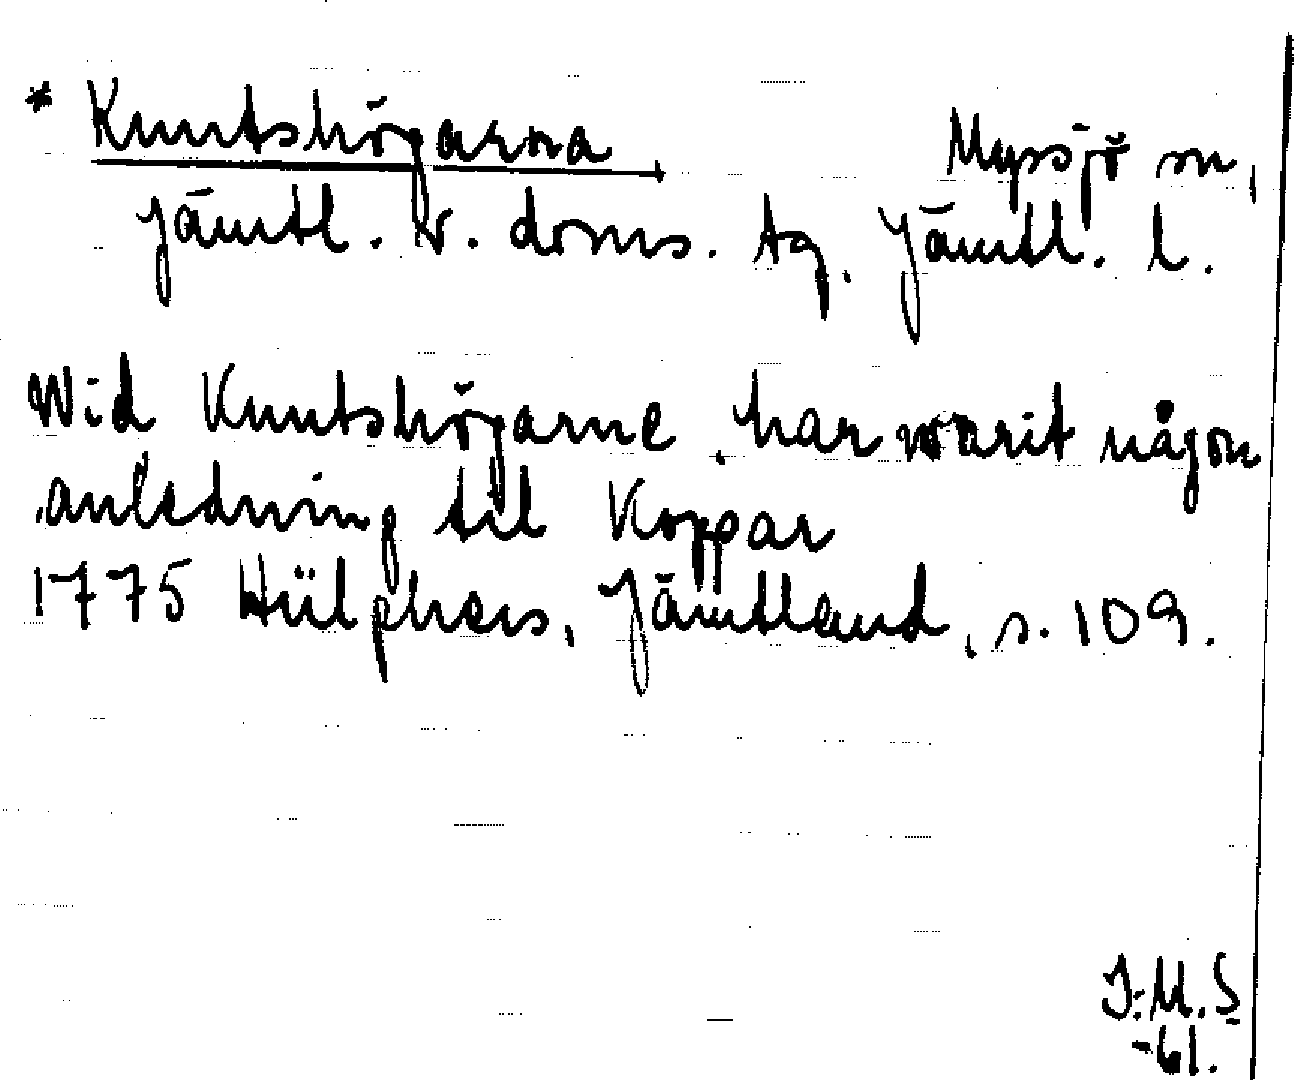 * Knutshögarna Myssjö sn,
Jämtl. v. doms. tg, Jämtl. l.
Wid Knutshögarne, har warit någon
anledning til Koppar
1775 Hülphers, Jämtland, s. 109.
I.M.S
-61.